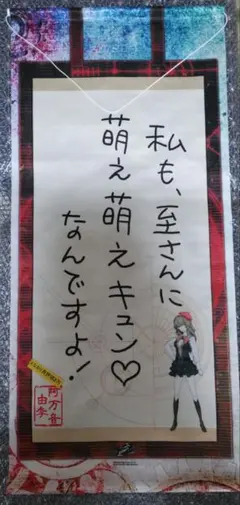 私も、至さんに
萌え萌えキュン♡
なんですよ!
阿万音
由季